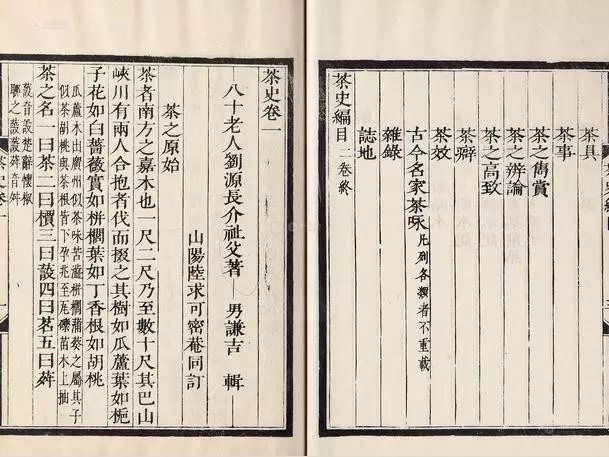 茶具
茶事
茶之雋賞
茶之辨論
茶之高致
茶癖
茶效
古今名家茶咏 凡列各類者不重載
雜錄
誌地
茶史編目 二卷終
茶史卷一
八十老人劉源長介祉父著 男謙吉 輯
山陽陸求可密菴同訂
茶之原始
茶者南方之嘉木也一尺二尺乃至數十尺其巴山
峽川有兩人合抱者伐而掇之其樹如瓜蘆葉如梔
子花如白薔薇實如栟櫚葉如丁香根如胡桃
瓜蘆木出廣州似茶味苦澁栟櫚蒲葵之屬其子
似茶胡桃與茶根皆下孕兆至瓦礫苗木上抽
茶之名一曰茶二曰檟三曰蔎四曰茗五曰荈
蔎音設楚辭懷椒
聊之蔎蔎荈音舛